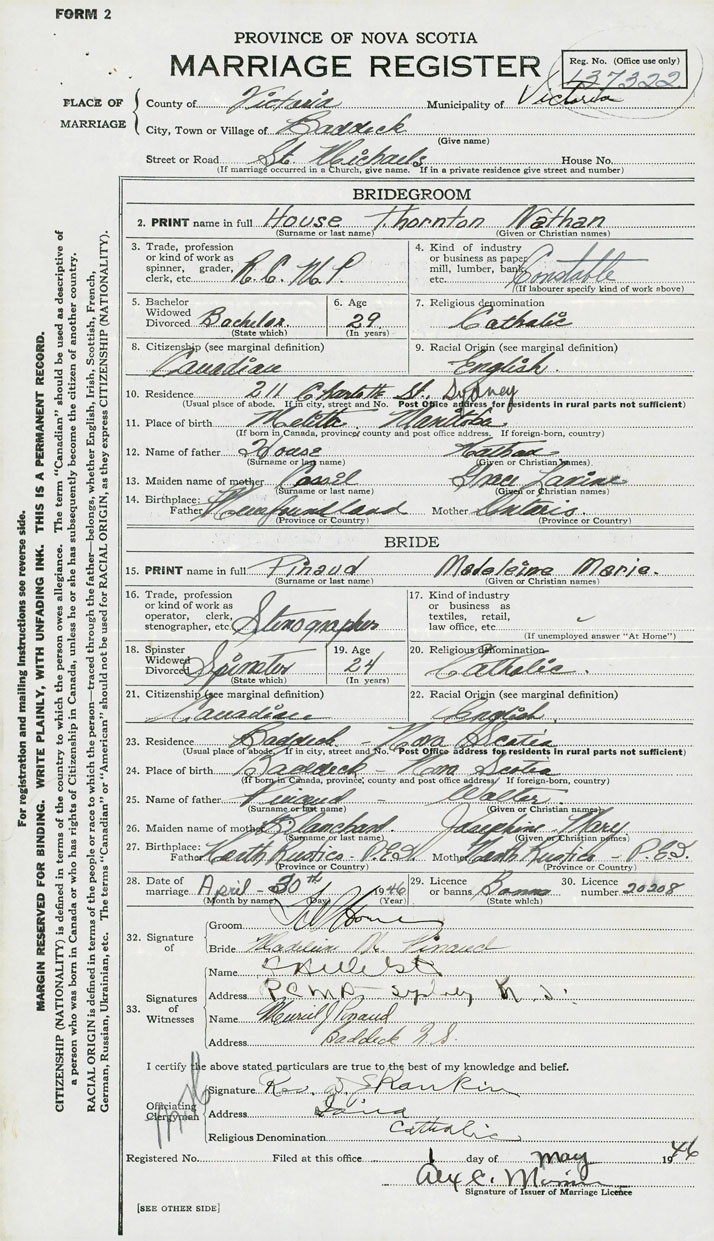 FORM 2
PROVINCE OF NOVA SCOTIA
MARRIAGE REGISTER
Reg. No. (Office use only)
137322
PLACE OF MARRIAGE
County of Victoria Municipality of Victoria
City, Town or Village of Baddeck
(Give name)
Street or Road St. Michaels House No.
(If marriage occurred in a Church, give name. If in a private residence give street and number)
BRIDEGROOM
2. PRINT name in full House Thornton Nathan
(Surname or last name) (Given or Christian names)
3. Trade, profession or kind of work as spinner, grader, clerk, etc. R.C.M.P.
4. Kind of industry or business as paper mill, lumber, bank, etc. Constable
(If labourer specify kind of work above)
5. Bachelor Widowed Divorced Bachelor.
(State which)
6. Age 29
(In years)
7. Religious denomination Catholic
8. Citizenship (see marginal definition) Canadian
9. Racial Origin (see marginal definition) English.
10. Residence 211 Charlotte St., Sydney
(Usual place of abode. If in city, street and No. Post Office address for residents in rural parts not sufficient)
11. Place of birth Melita - Manitoba
(If born in Canada, province, county and post office address. If foreign-born, country)
12. Name of father House Nathan
(Surname or last name) (Given or Christian names)
13. Maiden name of mother Cassel Grace
(Surname or last name) (Given or Christian names)
14. Birthplace: Father Newfoundland Mother Ontario
(Province or Country) (Province or Country)
BRIDE
15. PRINT name in full Pinaud Madeleine Marie.
(Surname or last name) (Given or Christian names)
16. Trade, profession or kind of work as operator, clerk, stenographer, etc. Stenographer
17. Kind of industry or business as textiles, retail, law office, etc.
(If unemployed answer "At Home")
18. Spinster Widowed Divorced Spinster
(State which)
19. Age 24
(In years)
20. Religious denomination Catholic.
21. Citizenship (see marginal definition) Canadian
22. Racial Origin (see marginal definition) English.
23. Residence Baddeck - Nova Scotia
(Usual place of abode. If in city, street and No. Post Office address for residents in rural parts not sufficient)
24. Place of birth Baddeck - Nova Scotia
(If born in Canada, province, county and post office address. If foreign-born, country)
25. Name of father Pinaud - Walter
(Surname or last name) (Given or Christian names)
26. Maiden name of mother Blanchard Josephine Mary
(Surname or last name) (Given or Christian names)
27. Birthplace: Father North Rustico P.E.I. Mother North Rustico - P.E.I.
(Province or Country) (Province or Country)
28. Date of marriage April - 30th 1946
(Month by name) (Day) (Year)
29. Licence or banns Banns
(State which)
30. Licence number 20208
32. Signature of
Groom House
Bride Madelein M. Pinaud
33. Signatures of Witnesses
Name
Address RCMP - Sydney N.S.
Name Muriel J Pinaud
Address Baddeck N.S.
I certify the above stated particulars are true to the best of my knowledge and belief.
Officiating Clergyman
Signature Rev. Rankin
Address Iona
Religious Denomination Catholic
Registered No. Filed at this office 1 day of May 1946
Alex C.
Signature of Issuer of Marriage Licence
[SEE OTHER SIDE]
For registration and mailing instructions see reverse side.
MARGIN RESERVED FOR BINDING. WRITE PLAINLY, WITH UNFADING INK. THIS IS A PERMANENT RECORD.
CITIZENSHIP (NATIONALITY) is defined in terms of the country to which the person owes allegiance. The term "Canadian" should be used as descriptive of
a person who was born in Canada or who has rights of Citizenship in Canada, unless he or she has subsequently become the citizen of another country.
RACIAL ORIGIN is defined in terms of the people or race to which the person—traced through the father—belongs, whether English, Irish, Scottish, French,
German, Russian, Ukrainian, etc. The terms "Canadian" or "American" should not be used for RACIAL ORIGIN, as they express CITIZENSHIP (NATIONALITY).